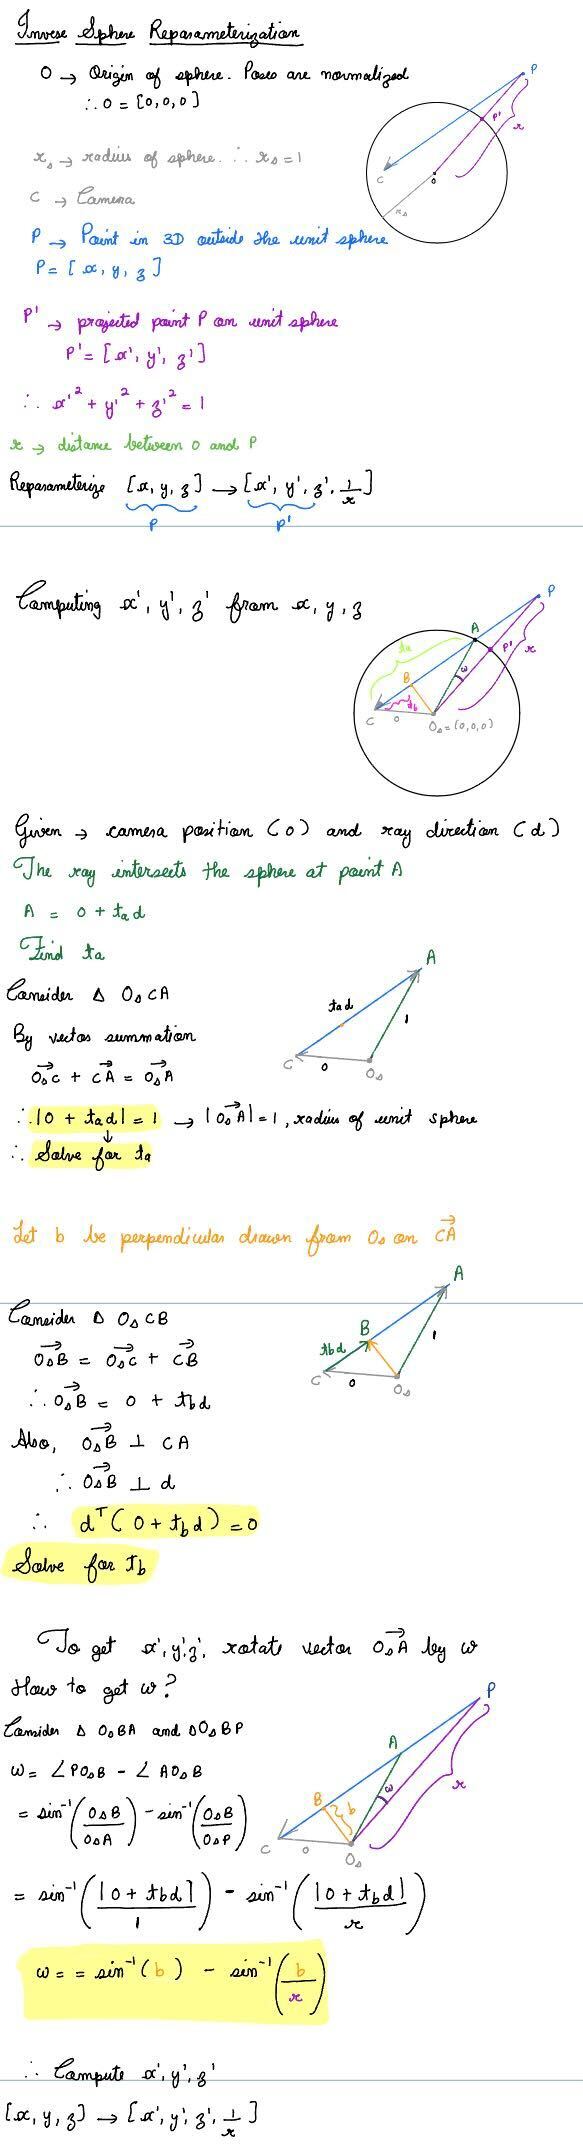 Invese Sphere Reparameterization
O → Origin of sphere. Poses are normalized
∴ O = [0,0,0]
P
P'
r
C
O
rs
rs → radius of sphere. ∴ rs = 1
C → Camera
P → Point in 3D outside the unit sphere
P = [x, y, z]
P' → projected point P on unit sphere
P' = [x', y', z']
∴ x'² + y'² + z'² = 1
r → distance between O and P
Reparameterize [x, y, z] → [x', y', z', 1/r]
P
P'
Computing x', y', z' from x, y, z
P
A
P'
r
ta
ω
B
tb
C
o
Os = (0,0,0)
Given → camera position (o) and ray direction (d)
The ray intersects the sphere at point A
A = o + ta d
Find ta
Consider Δ OsCA
By vector summation
OsC + CA = OsA
∴ |o + ta d| = 1 → |OsA| = 1, radius of unit sphere
↓
∴ Solve for ta
A
ta d
1
C
o
Os
Let b be perpendicular drawn from Os on CA
Consider Δ OsCB
OsB = OsC + CB
∴ OsB = o + tbd
Also, OsB ⊥ CA
∴ OsB ⊥ d
∴ dᵀ(o + tb d) = 0
Solve for tb
A
B
tbd
1
C
o
Os
To get x', y', z', rotate vector OsA by ω
How to get ω?
Consider Δ OsBA and ΔOsBP
ω = ∠POsB - ∠AOsB
= sin⁻¹(OsB/OsA) - sin⁻¹(OsB/OsP)
= sin⁻¹(|o + tbd|/1) - sin⁻¹(|o + tbd|/r)
ω = = sin⁻¹(b) - sin⁻¹(b/r)
P
A
ω
r
B
b
C
o
Os
∴ Compute x', y', z'
[x, y, z] → [x', y', z', 1/r]